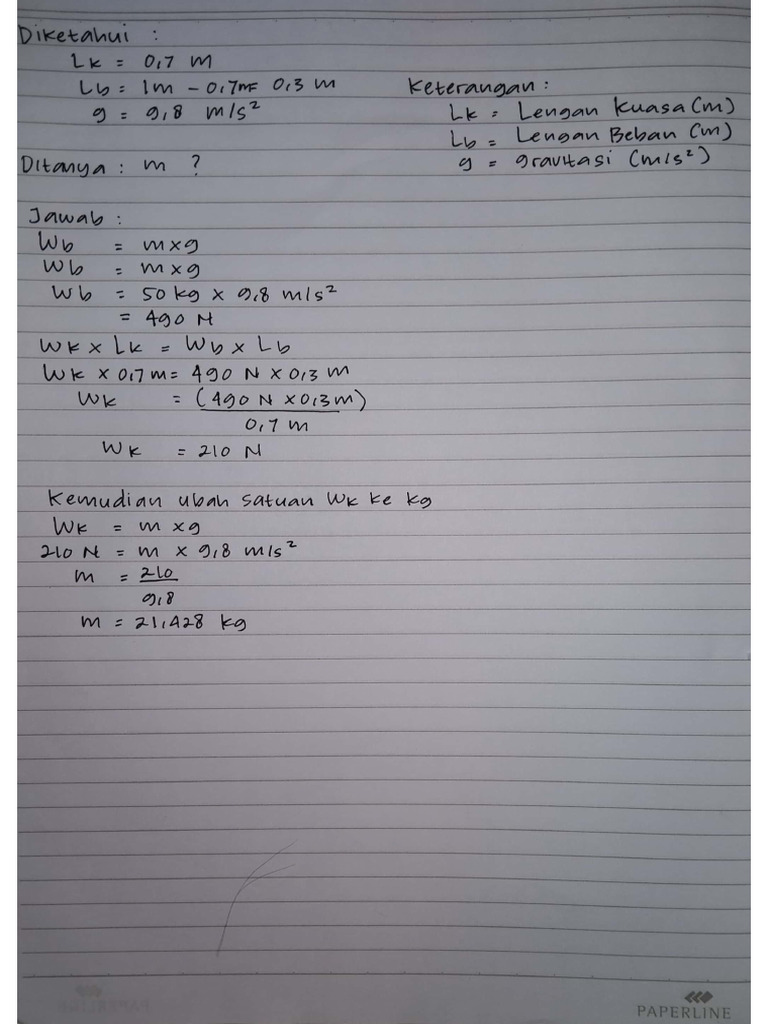 Diketahui :
Lk = 0,7 m
Lb = 1m - 0,7m = 0,3 m
g = 9,8 m/s²
Keterangan :
Lk = Lengan Kuasa (m)
Lb = Lengan Beban (m)
g = gravitasi (m/s²)
Ditanya : m ?
Jawab :
Wb = m x g
Wb = m x g
Wb = 50 kg x 9,8 m/s²
= 490 N
Wk x Lk = Wb x Lb
Wk x 0,7 m = 490 N x 0,3 m
Wk = (490 N x 0,3 m)
0,7 m
Wk = 210 N
Kemudian ubah satuan Wk ke kg
Wk = m x g
210 N = m x 9,8 m/s²
m = 210
9,8
m = 21,428 kg
PAPERLINE